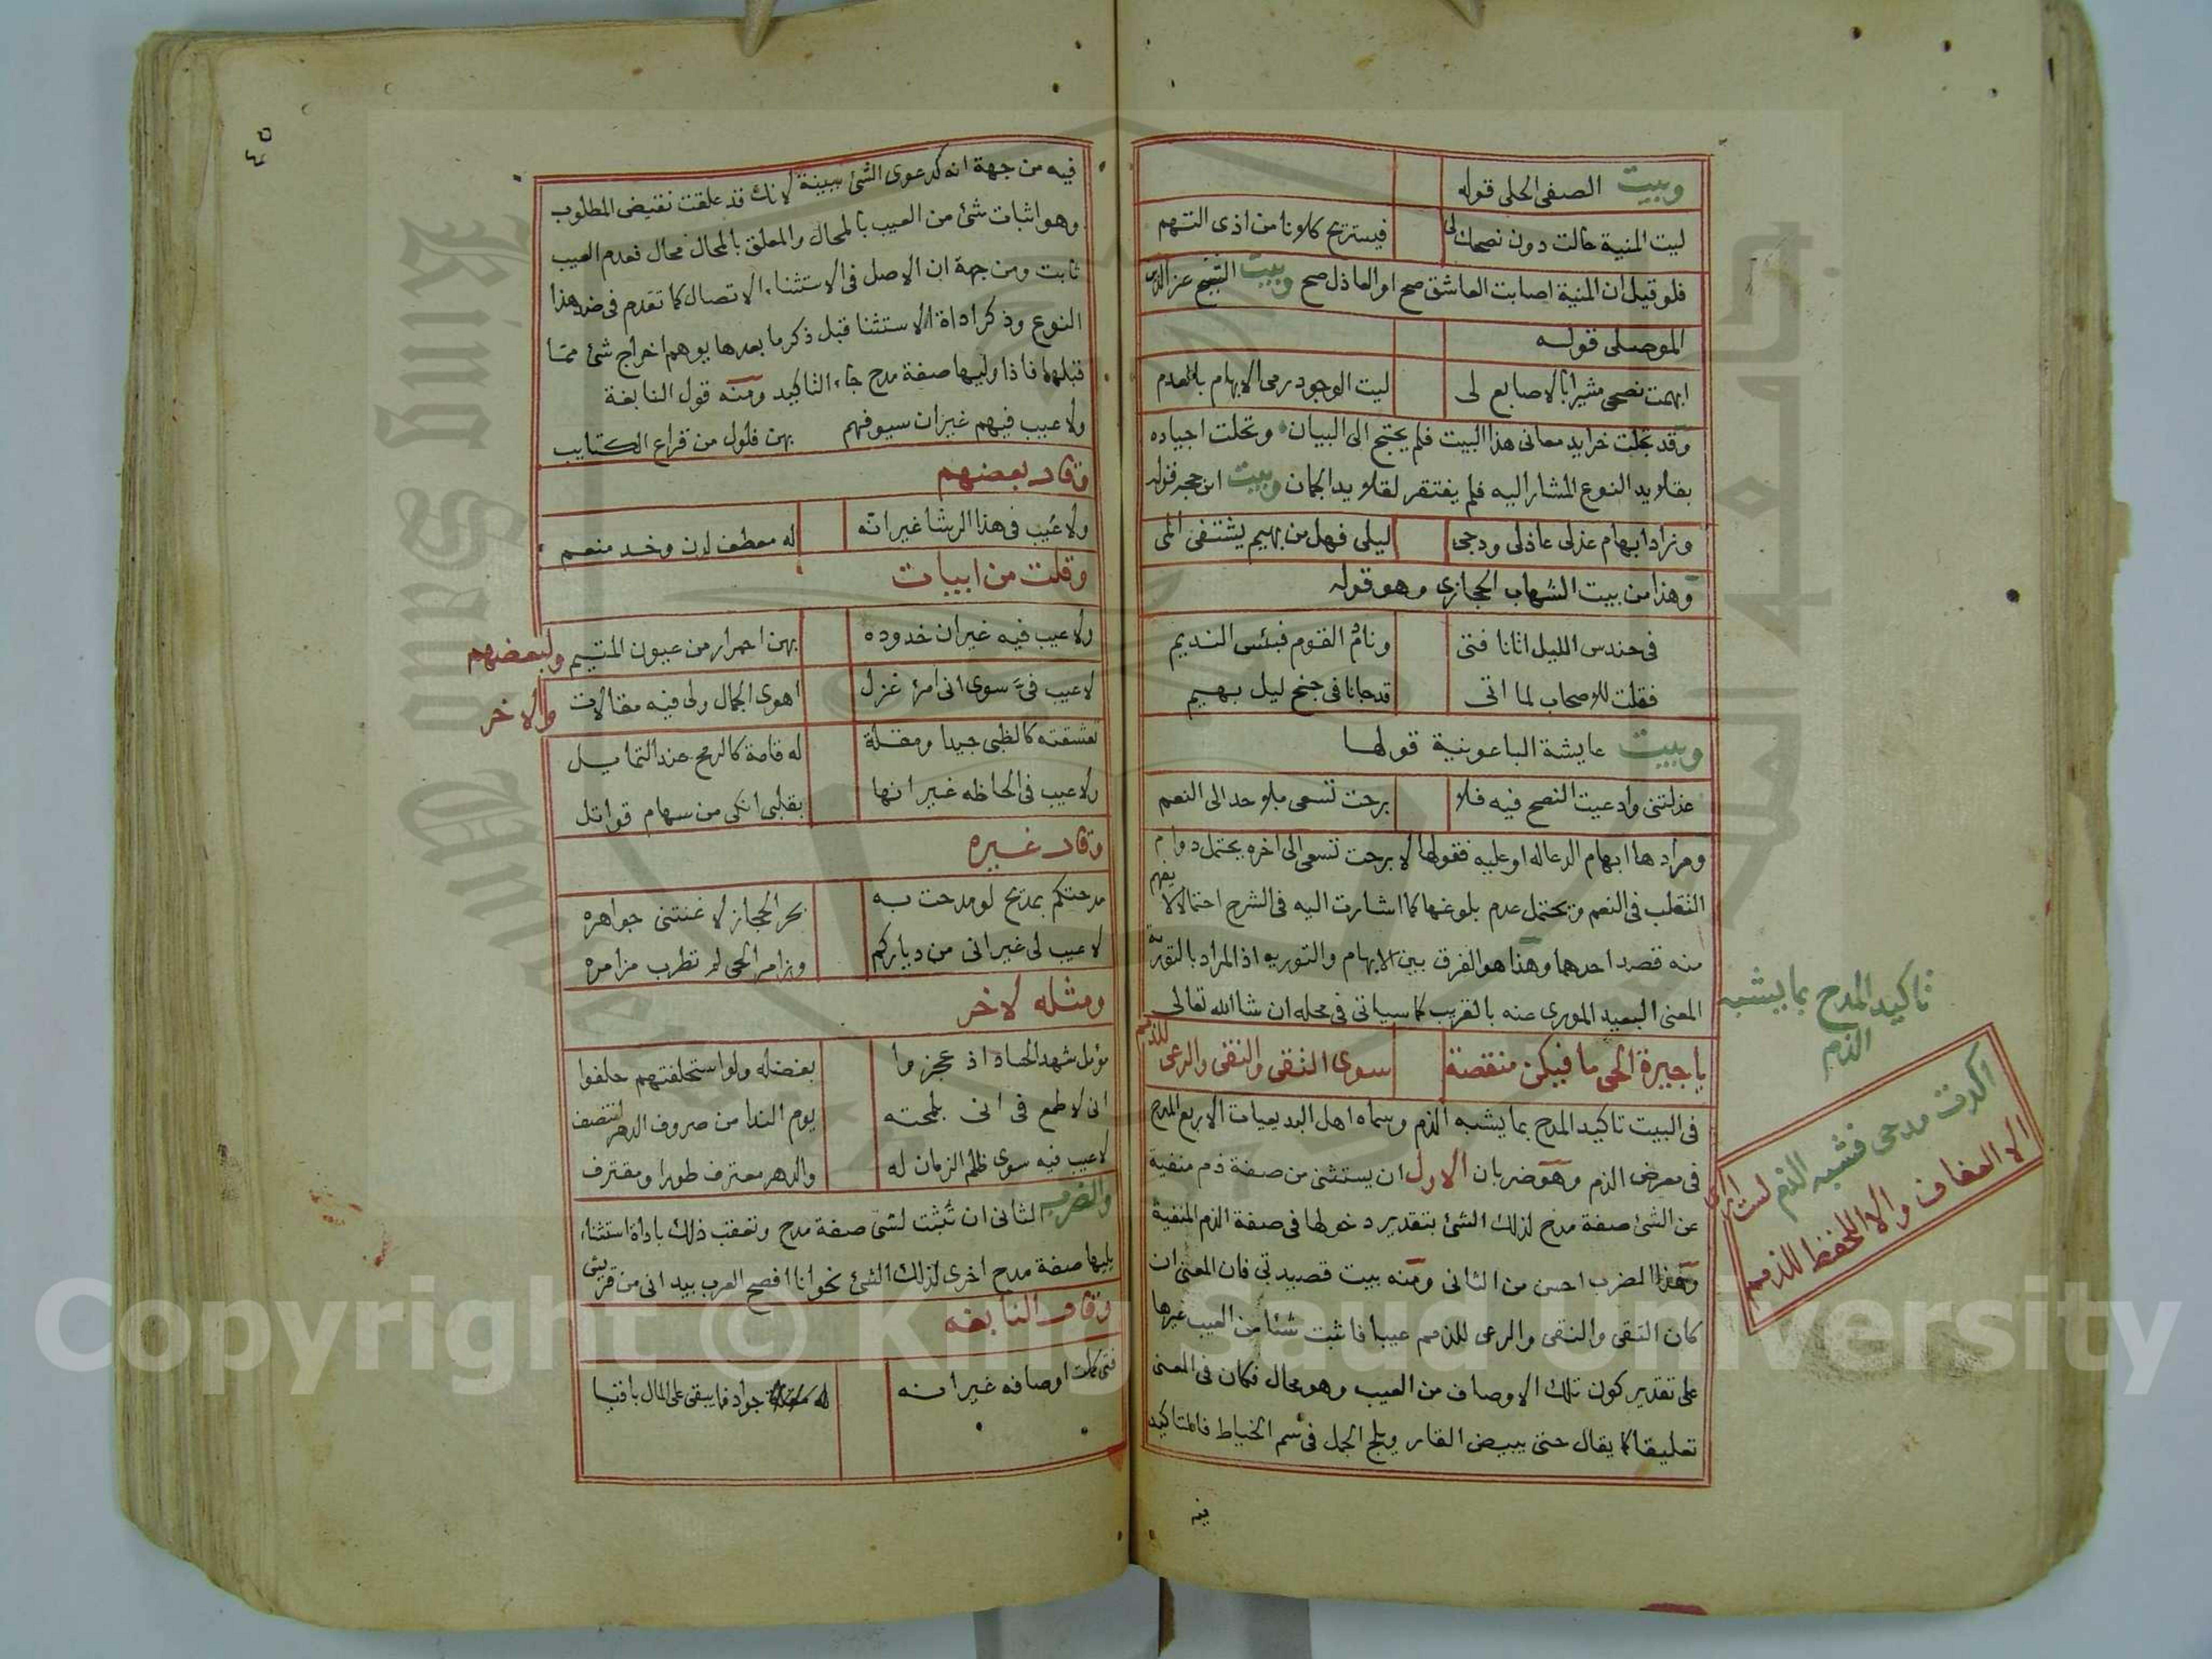 وبيت الصفى الحلى قوله
ليت المنية حالت دون نصحك لى فيستريح كلانا من اذى التهم
فلو قيل ان المنية اصابت العاشق صح او العاذل صح وبيت الشيخ عز الدين
الموصلى قوله
ابهمت نصحى مشيرا بالاصابع لى ليت الوجود رمى الابهام بالعدم
وقد تجلت خرايد معانى هذا البيت فلم يحتج الى البيان وتحلت اجياده
بقلايد النوع المشار اليه فلم يفتقر لقلايد الجمان وبيت ابن حجه قوله
وزاد ابهام عذلى عاذلى ودجى ليلى فهل من بهيم يشتفى المى
وهذا من بيت الشهاب الحجازى وهو قوله
فى حندس الليل اتانا فتى ونام القوم فبئس النديم
فقلت للاصحاب لما اتى قد جانا فى جنح ليل بهيم
وبيت عايشة الباعونية قولها
عذلتنى وادعيت النصح فيه فلا برحت تسعى بلا حد الى النعم
ومرادها ابهام الدعا له او عليه فقولها لا برحت تسعى الى اخره يحتمل دوام
التقلب فى النعم ويحتمل عدم بلوغها كما اشارت اليه فى الشرح احتمالا لا يفهم
منه قصد احدهما وهذا هو الفرق بين الابهام والتوريه اذ المراد بالتورية
المعنى البعيد المورى عنه بالقريب كما سياتى فى محله ان شا الله تعالى
تاكيد المدح بما يشبه
الذم
يا جيرة الحى ما فيكن منقصة سوى التقى والنقى والرعى للذمم
اكدت مدحى فشبه الذم لست ارى
الا العفاف والا الحفظ للذمم
فى البيت تاكيد المدح بما يشبه الذم وسماه اهل البديعيات الاربع المدح
فى معرض الذم وهو ضربان الاول ان يستثنى من صفة ذم منفية
عن الشئ صفة مدح لذلك الشئ بتقدير دخولها فى صفة الذم المنفية
وهذا الضرب احسن من الثانى ومنه بيت قصيدتى فان المعنى ان
كان التقى والنقى والرعى للذمم عيبا فاثبت شئا من العيب غيرها
على تقدير كون تلك الاوصاف من العيب وهو محال فكان فى المعنى
تعليقا كما يقال حتى يبيض القار ويلج الجمل فى سم الخياط فالتاكيد
فيه
٤٥
فيه من جهة انه كدعوى الشئ ببينة لانك قد علقت نقيض المطلوب
وهو اثبات شئ من العيب بالمحال والمعلق بالمحال محال فعدم العيب
ثابت ومن جهة ان الاصل فى الاستثناء الاتصال كما تقدم فى ضد هذا
النوع وذكر اداة الاستثنا قبل ذكر ما بعدها يوهم اخراج شئ مما
قبلها فاذا وليها صفة مدح جاء التاكيد ومنه قول النابغة
ولا عيب فيهم غير ان سيوفهم بهن فلول من قراع الكتايب
وقال بعضهم
ولا عيب فى هذا الرشا غير انه له معطف لدن وخد منعم
وقلت من ابيات
ولا عيب فيه غير ان خدوده بهن احمرار من عيون المتيم ولبعضهم
لا عيب فى سوى انى امرؤ غزل اهوى الجمال ولى فيه مقالات والاخر
تعشقته كالظبى جيدا ومقلة له قامة كالرمح عند التمايل
ولا عيب فى الحاظه غير انها بقلبى انكى من سهام قواتل
وقال غيره
مدحتكم بمديح لو مدحت به بحر الحجاز لاغنتنى جواهره
لا عيب لى غير انى من دياركم وزامر الحى لم تطرب مزامره
ومثله لاخر
مؤمل شهد الحساد اذ عجزوا بفضله ولو استحلفتهم حلفوا
انى لاطمع فى انى بلمحته يوم الندا من صروف الدهر انتصف
لا عيب فيه سوى ظلم الزمان له والدهر معترف طورا ومقترف
والضرب الثانى ان تثبت لشئ صفة مدح وتعقب ذلك باداة استثناء
يليها صفة مدح اخرى لذلك الشئ نحو انا افصح العرب بيد انى من قريش
وقال النابغه
فتى كملت اوصافه غير انه جواد فما يبقى على المال باقيا
Copyright © King Saud University